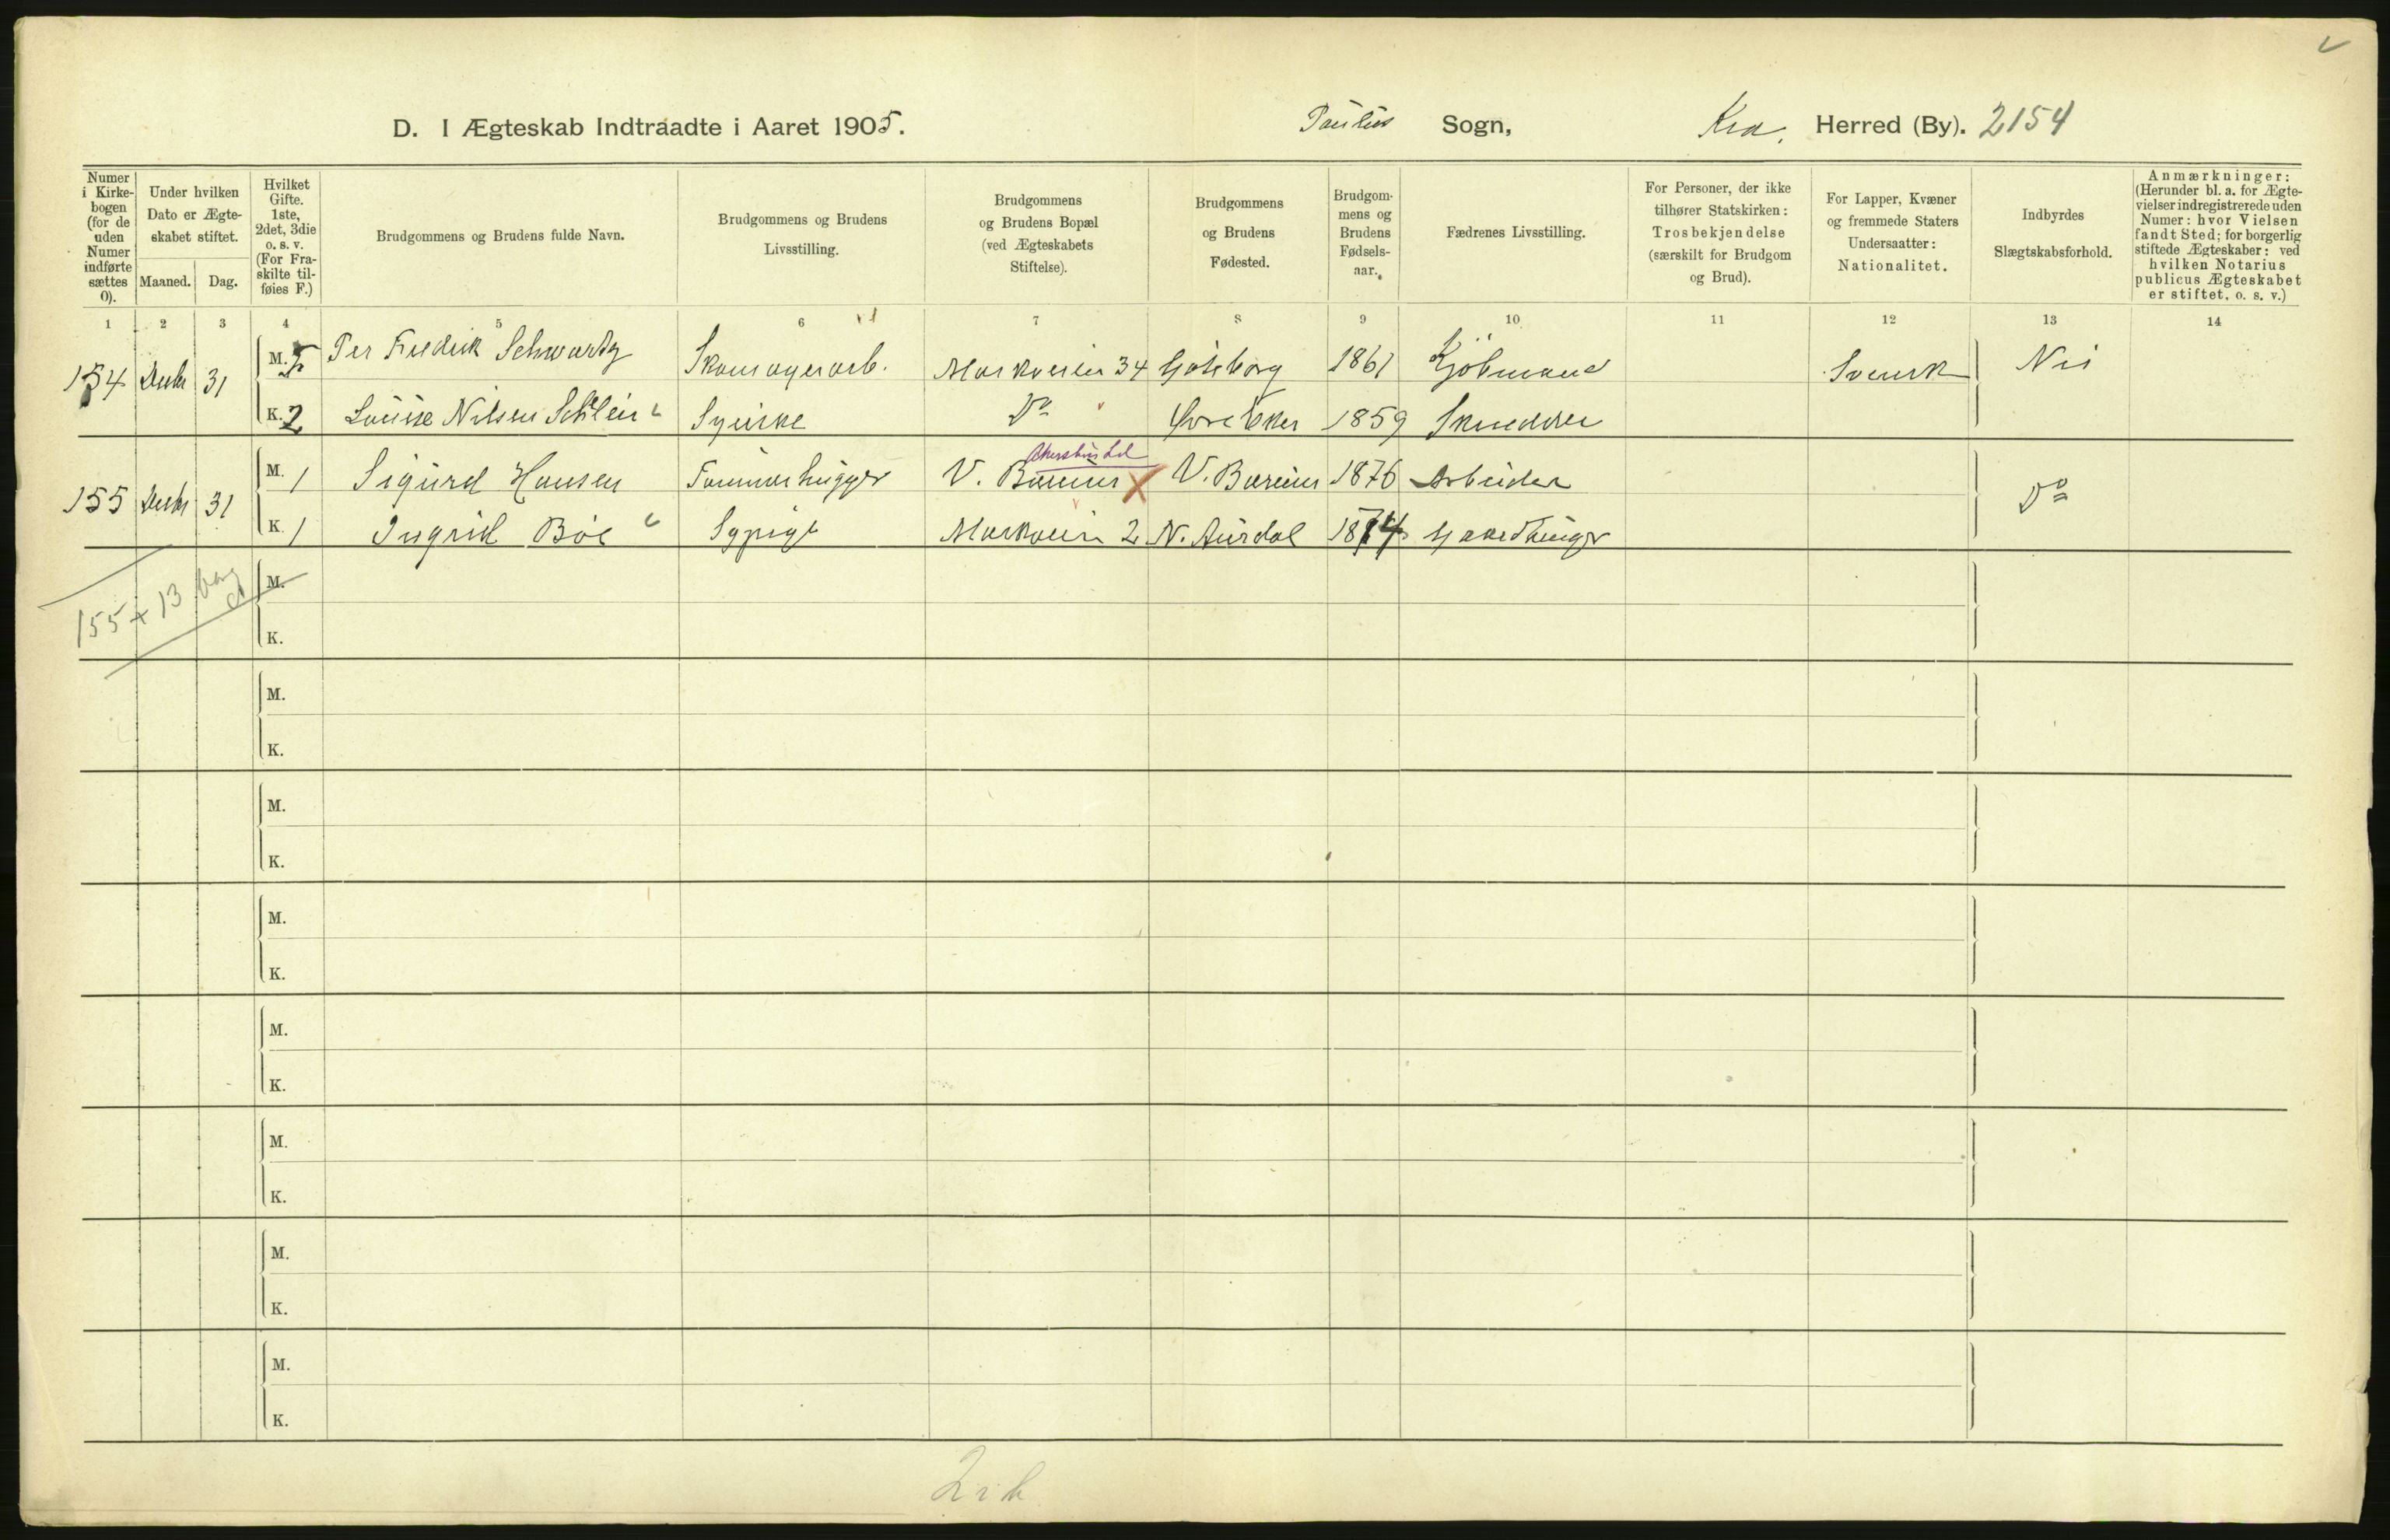 D. I Ægteskab Indtraadte i Aaret 1905. Paulus Sogn, Kra. Herred (By). 2154
Numer i Kirkebogen (for de uden Numer indførte sættes 0).
Under hvilken Dato er Ægteskabet stiftet.
Maaned. Dag.
Hvilket Gifte. 1ste, 2det, 3die o. s. v. (For Fraskilte tilføies F.)
Brudgommens og Brudens fulde Navn.
Brudgommens og Brudens Livsstilling.
Brudgommens og Brudens Bopæl (ved Ægteskabets Stiftelse).
Brudgommens og Brudens Fødested.
Brudgommens og Brudens Fødselsaar.
Fædrenes Livsstilling.
For Personer, der ikke tilhører Statskirken: Trosbekjendelse (særskilt for Brudgom og Brud).
For Lapper, Kvæner og fremmede Staters Undersaatter: Nationalitet.
Indbyrdes Slægtskabsforhold.
Anmærkninger: (Herunder bl. a. for Ægtevielser indregistrerede uden Numer: hvor Vielsen fandt Sted; for borgerlig stiftede Ægteskaber: ved hvilken Notarius publicus Ægteskabet er stiftet, o. s. v.)
1 2 3 4 5 6 7 8 9 10 11 12 13 14
154 Decbr 31 M. Per Fredrik Schwartz Skomagerarb. Markveien 34 Gøteborg 1861 Kjøbmand Svensk Nei
K. 2 Louise Nilsen Syerske Do Øvre Eker 1859 Skredder
155 Decbr 31 M. 1 Sigurd Hansen Tømmerhugger V. Bærum X V. Bærum 1876 Arbeider Do
K. 1 Ingrid Bøe Sypige Markveien 2 N. Aurdal 1874
155 + 13
M.
K.
M.
K.
M.
K.
M.
K.
M.
K.
M.
K.
M.
K.
M.
K.